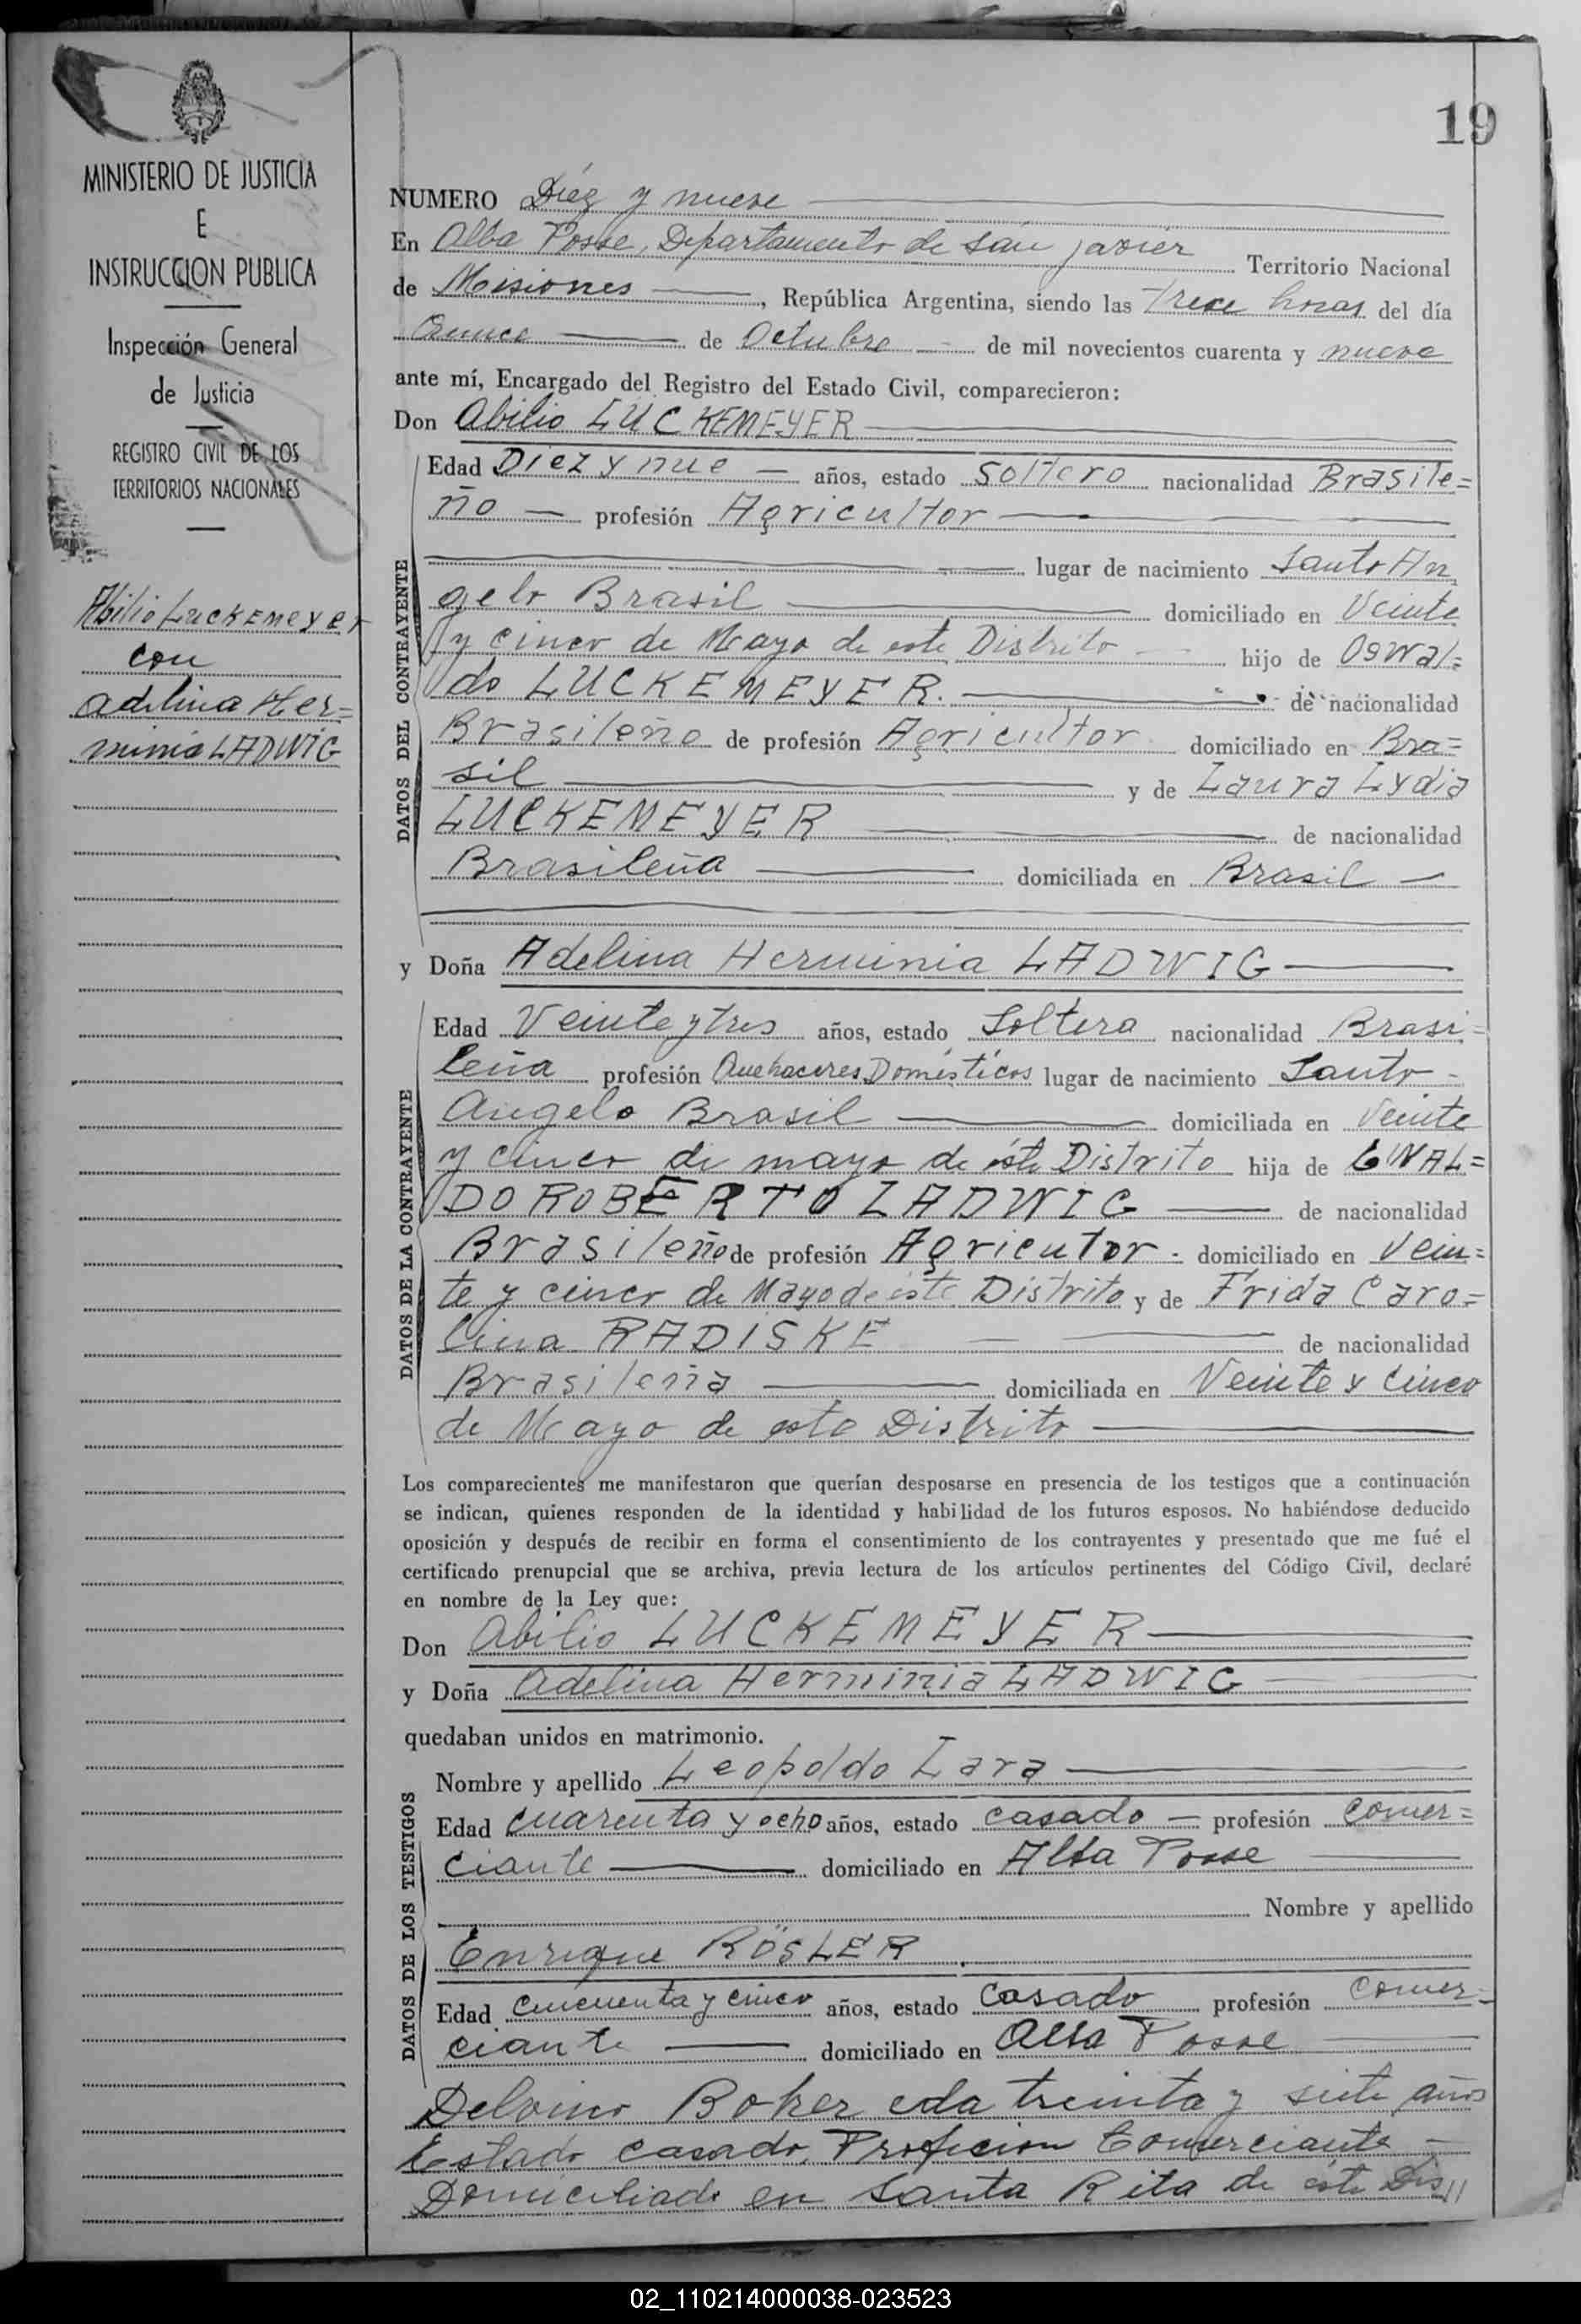 19
MINISTERIO DE JUSTICIA
E
INSTRUCCION PUBLICA
Inspección General
de Justicia
REGISTRO CIVIL DE LOS
TERRITORIOS NACIONALES
Abilio Luckemeyer
con
adelina Her=
minia LADWIG
NUMERO Diez y nueve
En Alba Posse, Departamento de San Javier Territorio Nacional
de Misiones, República Argentina, siendo las trece horas del día
Quince de Octubre de mil novecientos cuarenta y nueve
ante mí, Encargado del Registro del Estado Civil, comparecieron:
Don Abilio LUCKEMEYER
DATOS DEL CONTRAYENTE
Edad Diez y nue años, estado Soltero nacionalidad Brasile=
ño profesión Agricultor
lugar de nacimiento Santo An
gelo Brasil domiciliado en Veinte
y cinco de Mayo de este Distrito hijo de Oswal=
do LUCKEMEYER. de nacionalidad
Brasileño de profesión Agricultor domiciliado en Bra=
sil y de Laura Lydia
LUCKEMEYER de nacionalidad
Brasileña domiciliada en Brasil
y Doña Adelina Herminia LADWIG
DATOS DE LA CONTRAYENTE
Edad Veinte y tres años, estado Soltera nacionalidad Brasi=
leña profesión Quehaceres Domésticos lugar de nacimiento Santo
Angelo Brasil domiciliada en Veinte
y cinco de mayo de éste Distrito hija de EWAL=
DO ROBERTO LADWIG de nacionalidad
Brasileño de profesión Agricutor domiciliado en Vein=
te y cinco de Mayo de este Distrito y de Frida Caro=
lina RADISKE de nacionalidad
Brasileña domiciliada en Veinte y Cinco
de Mayo de este Distrito
Los comparecientes me manifestaron que querían desposarse en presencia de los testigos que a continuación
se indican, quienes responden de la identidad y habilidad de los futuros esposos. No habiéndose deducido
oposición y después de recibir en forma el consentimiento de los contrayentes y presentado que me fué el
certificado prenupcial que se archiva, previa lectura de los artículos pertinentes del Código Civil, declaré
en nombre de la Ley que:
Don Abilio LUCKEMEYER
y Doña Adelina Herminia LADWIG
quedaban unidos en matrimonio.
DATOS DE LOS TESTIGOS
Nombre y apellido Leopoldo Lara
Edad cuarenta y ocho años, estado casado profesión Comer=
ciante domiciliado en Alba Posse
Nombre y apellido
Enrique RÖSLER
Edad Cincuenta y cinco años, estado Casado profesión Comer=
ciante domiciliado en Alba Posse
Delvino Boker eda treinta y siete años
Estado casado, Profecion Comerciante
Domiciliado en Santa Rita de éste Dis//
02_110214000038-023523